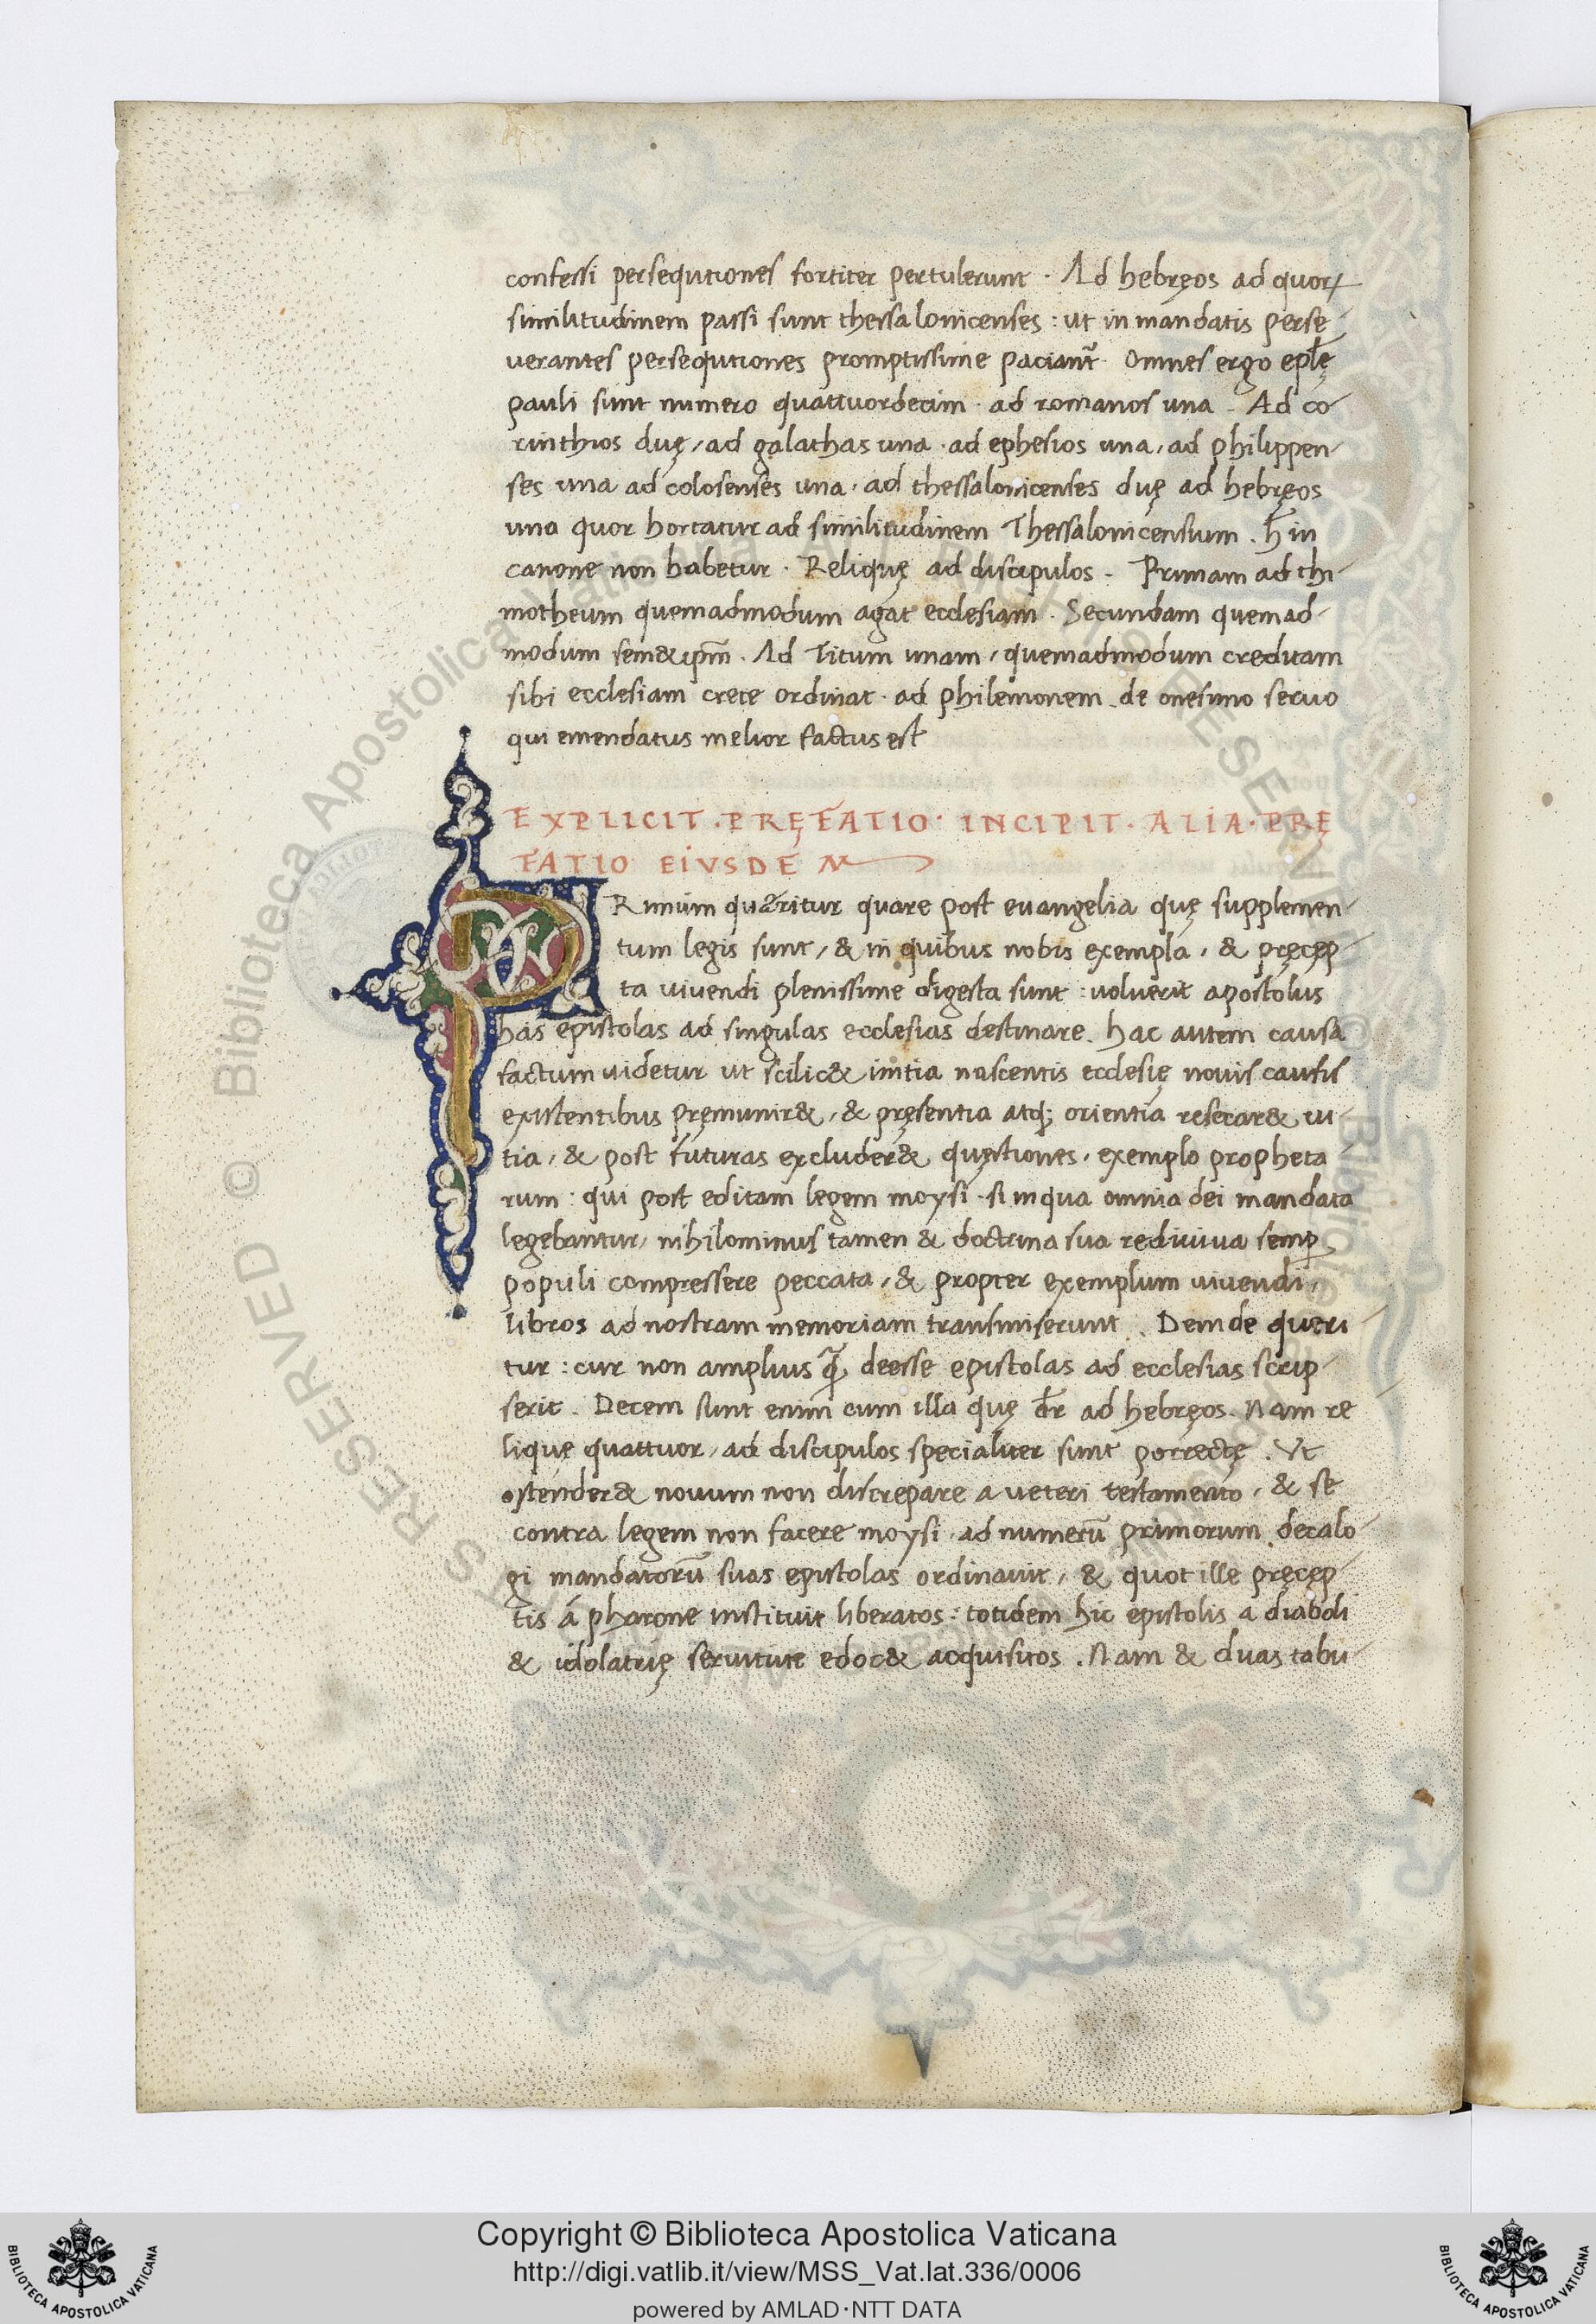 confessi persequtiones fortiter pertulerunt · Ad hebręos ad quoꝝ
similitudinem passi sunt thessalonicenses : ut in mandatis perse-
verantes persequtiones promptissime paciant᷑ Omnes ergo ep̃lę
pauli sunt numero quattuordecim · ad romanos una . Ad co-
rinthios duę / ad galathas una · ad ephesios una / ad philippen-
ses una ad colosenses una · ad thessalonicenses duę ad hebręos
una quor hortatur ad similitudinem Thessalonicensium . h̃ in
canone non habetur · Reliquę ad discipulos . Primam ad thi-
motheum quemadmodum agat ecclesiam . Secundam quemad-
modum sem&ip̃m . Ad Titum unam / quemadmodum creditam
sibi ecclesiam crete ordinat · ad philemonem . de onesimo servo
qui emendatus melior factus est
EXPLICIT · PRĘFATIO · INCIPIT · ALIA · PRĘ
FATIO EIVSDEM
PRimum quæritur quare post euangelia quę supplemen-
tum legis sunt / & in quibus nobis exempla / & pręcep-
ta uiuendi plenissime digesta sunt : uoluerit apostolus
has epistolas ad singulas ecclesias destinare . hac autem causa
factum uidetur ut scilic& initia nascentis ecclesię nouis causis
existentibus pręmunir& / & pręsentia atq; orientia resecar& ui-
tia / & post futuras excluder& quęstiones / exemplo propheta
rum : qui post editam legem moysi · si in qua omnia dei mandata
legebantur / nihilominus tamen & doctrina sua rediuiua semp̱
populi compressere peccata / & propter exemplum uiuendi /
libros ad nostram memoriam transmiserunt . Deinde queri-
tur : cur non amplius q̃ deesse epistolas ad ecclesias scrip-
serit . Decem sunt enim cum illa quę dr̃ ad hebręos . Nam re-
liquę quattuor / ad discipulos specialiter sunt porrectę . Vt
ostender& nouum non discrepare a ueteri testamento / & se
contra legem non facere moysi · ad numerũ primorum decalo-
gi mandatorũ suas epistolas ordinauit / & quot ille pręcep-
tis á pharone instituit liberatos : totidem hic epistolis a diaboli
& idolatrię seruitute edoc& acquisitos . Nam & duas tabu-
Copyright © Biblioteca Apostolica Vaticana
http://digi.vatlib.it/view/MSS_Vat.lat.336/0006
powered by AMLAD·NTT DATA
BIBLIOTECA APOSTOLICA VATICANA
BIBLIOTECA APOSTOLICA VATICANA